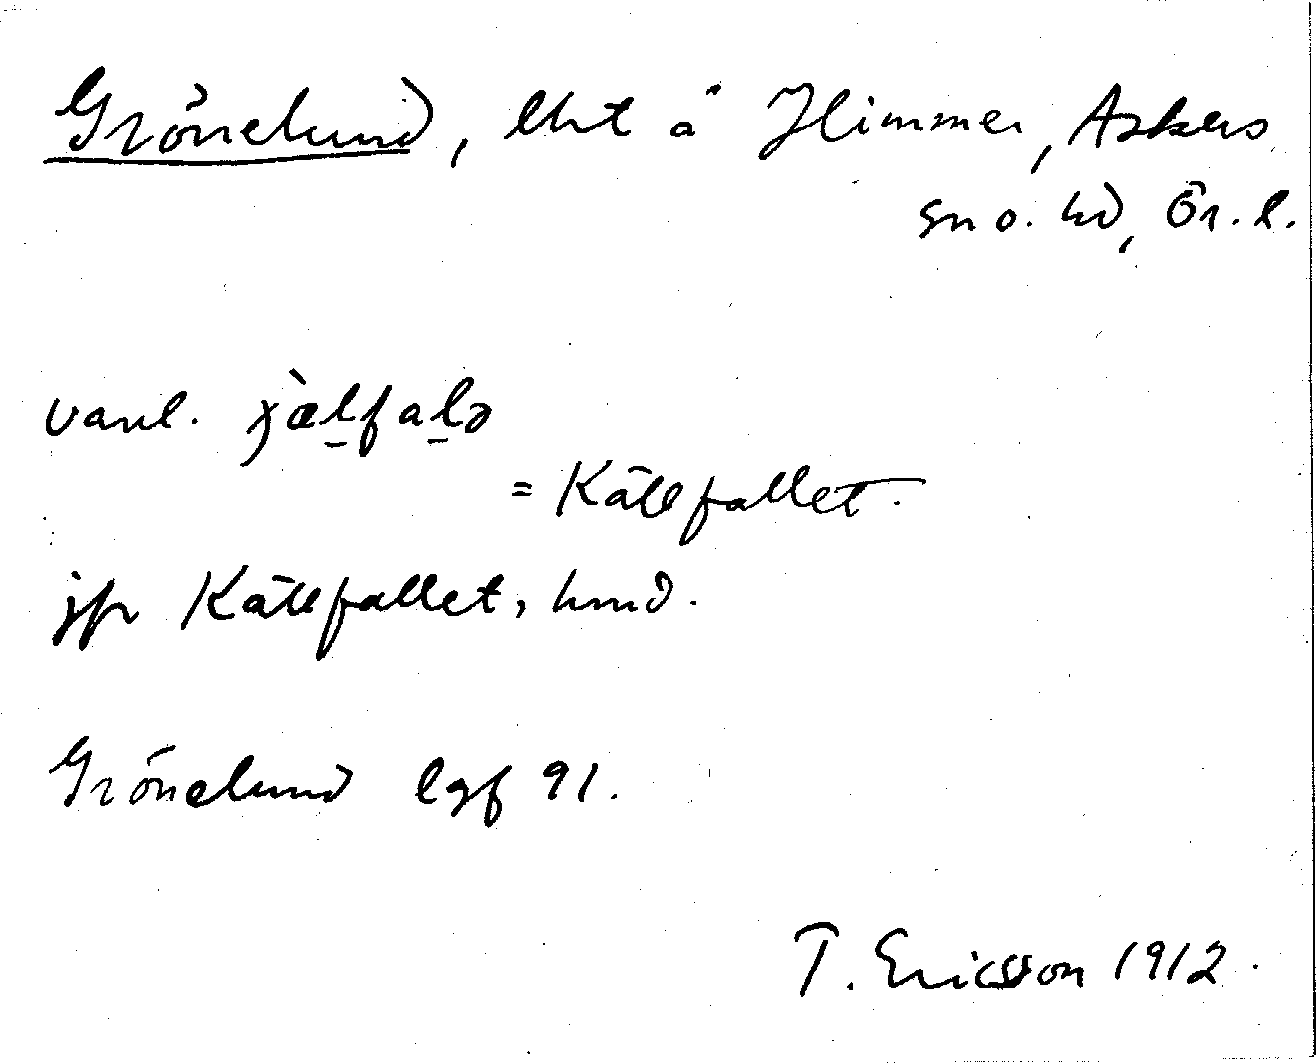 Grönelund, lht å Himmer, Askers
sn o. hd, Ör. l.
vanl. j̀ælfalə
= Källfallet.
jfr Källfallet, hmd.
Grönelund lgf 91.
T. Ericsson 1912.